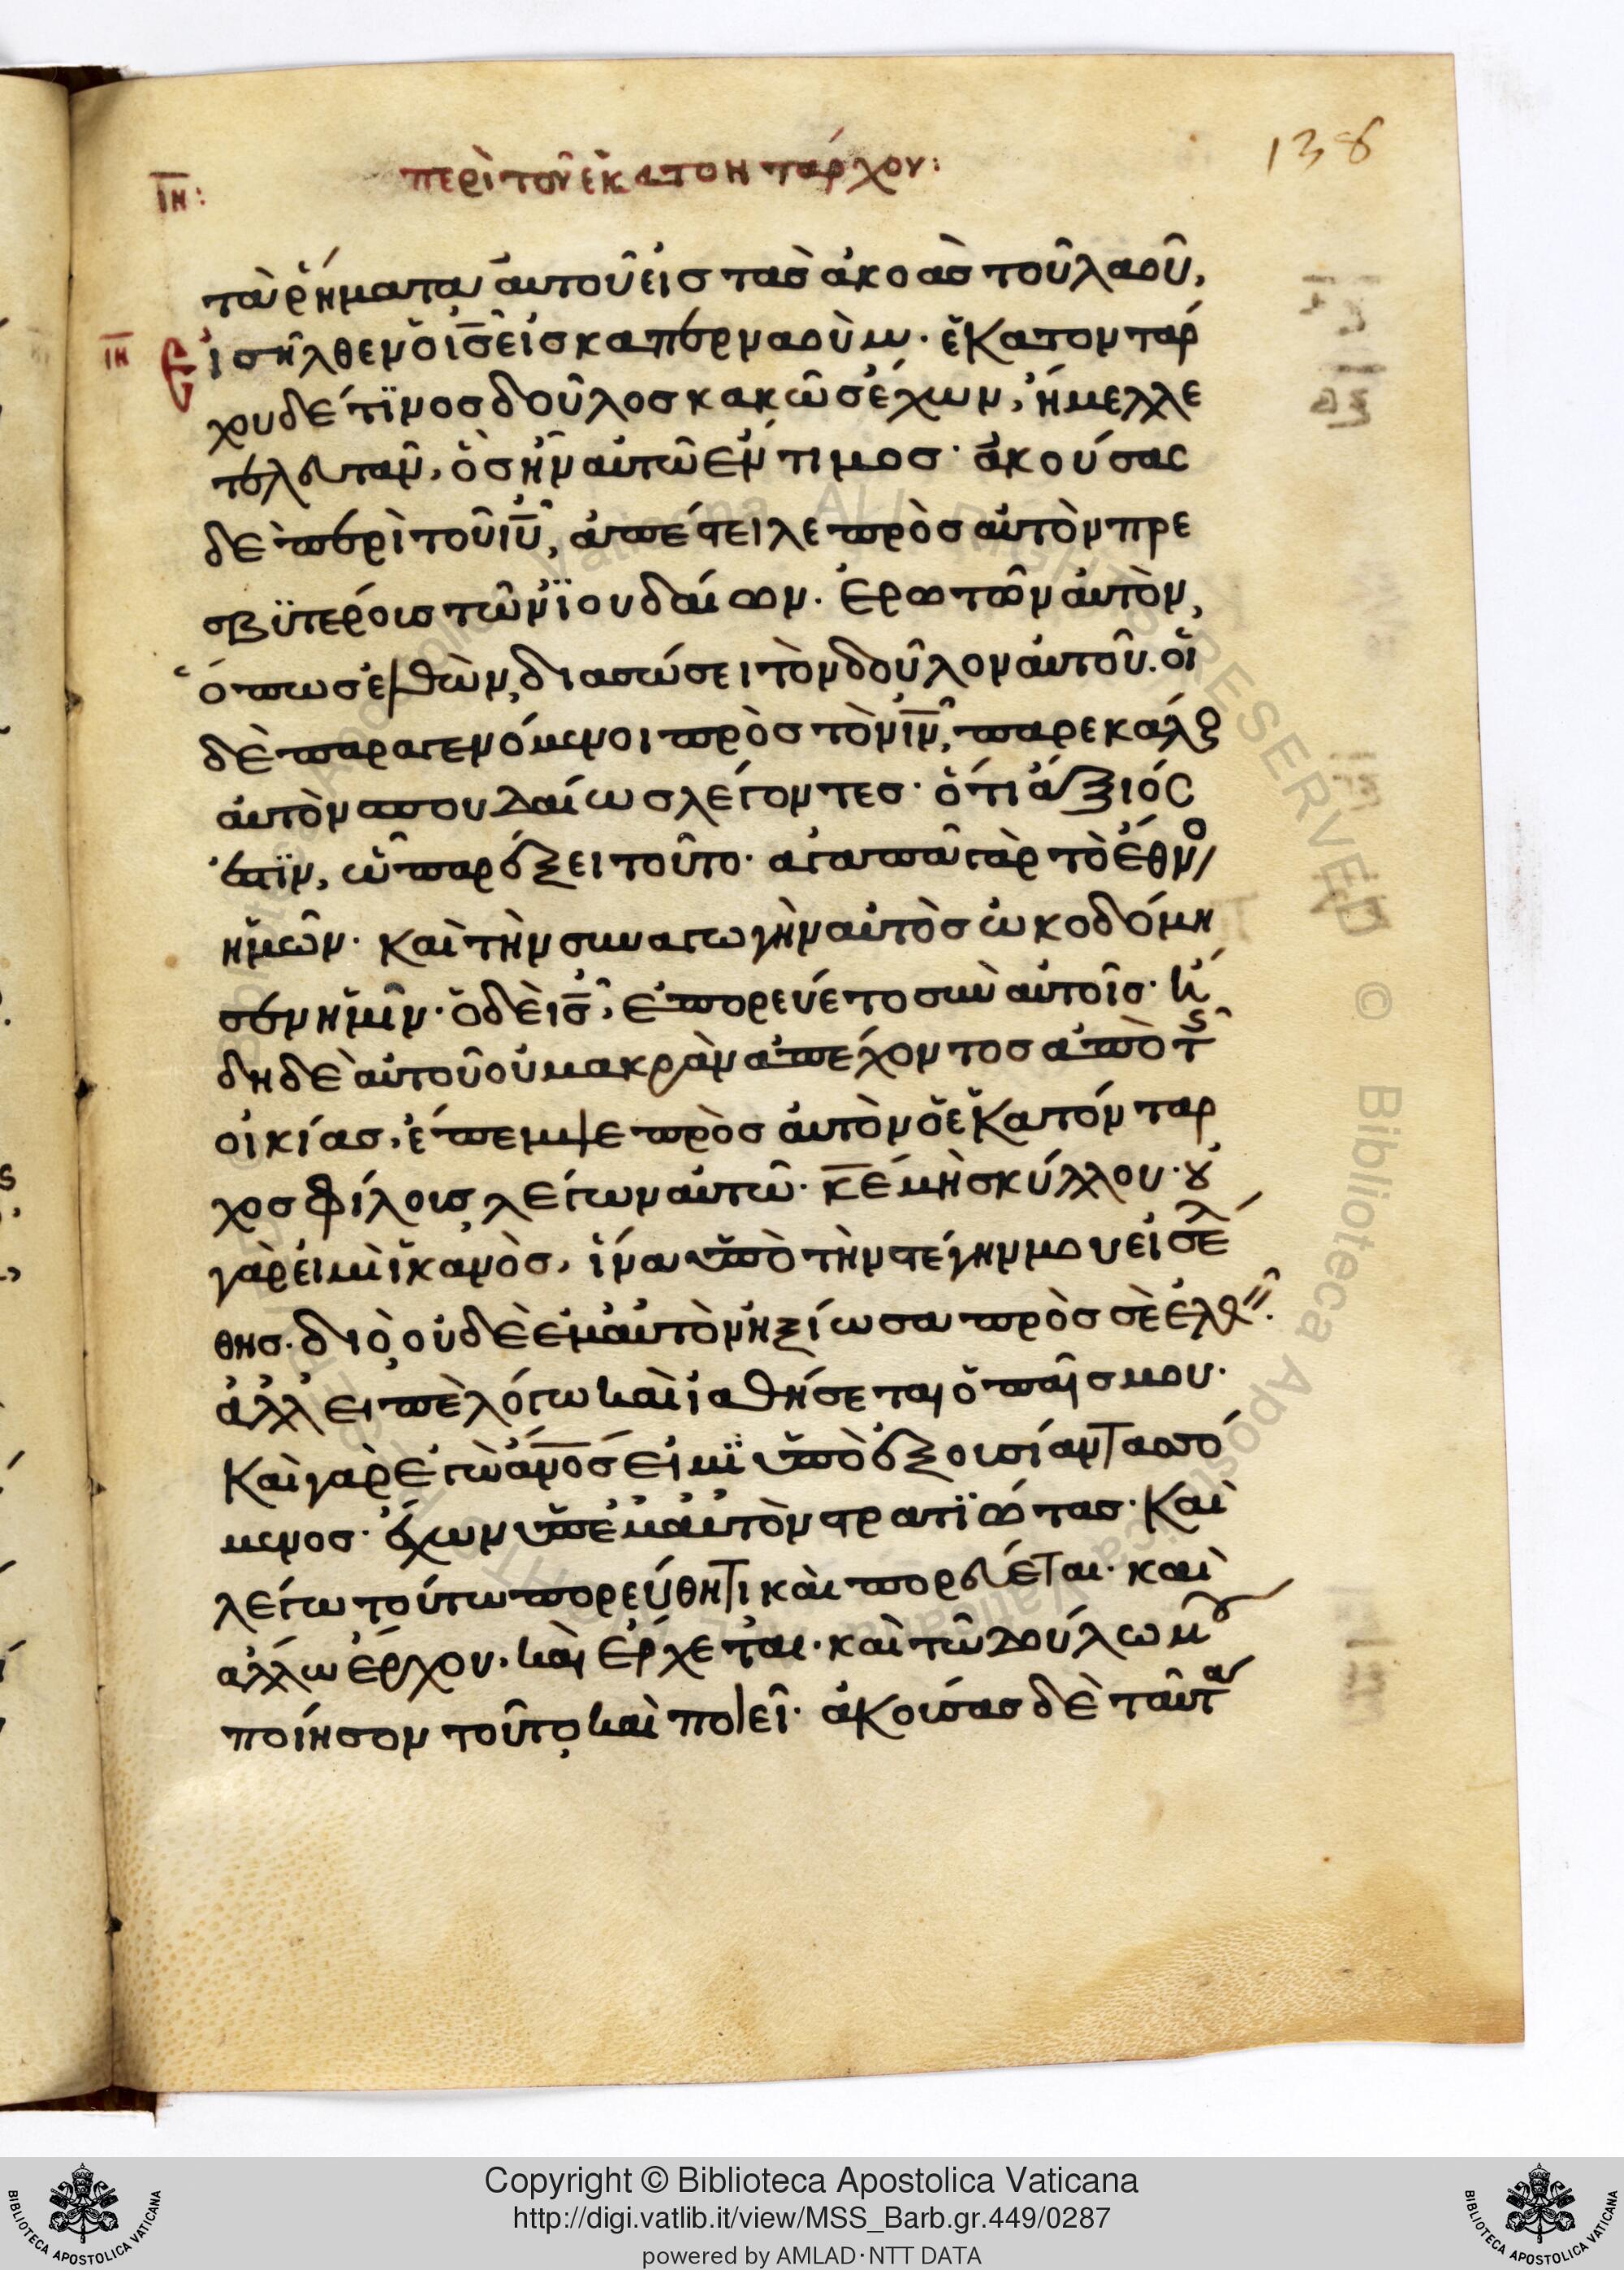 138
ιη: περὶ τοῦ ἑκατοντάρχου:
τὰ ῥήματα αὐτοῦ εἰς τὰς ἀκοὰς τοῦ λαοῦ,
ιη Εἰσῆλθεν ὁ ις εἰς καπερναοὺμ· ἑκατονταρ
χου δέ τϊνος δοῦλος κακῶς ἔχων, ἤμελλε
τελευτᾶν, ὃς ἦν αὐτῶ ἔντιμος· ἀκούσας
δὲ περὶ τοῦ ιυ, ἀπέστειλε πρὸς αὐτὸν πρε
σβϋτέρους τῶν ϊουδαίων· ἐρωτῶν αὐτὸν,
ὅπως ἐλθὼν, διασώσει τὸν δοῦλον αὐτοῦ. οἱ
δὲ παραγενόμενοι πρὸς τὸν ιν, παρεκάλουν
αὐτὸν σπουδαίως λέγοντες· ὅτι ἄξιός
ἐστϊν, ὧ παρέξει τοῦτο· ἀγαπᾶ γὰρ τὸ ἔθνο
ἡμῶν· καὶ τὴν συναγωγὴν αὐτὸς ὠκοδόμη
σεν ἡμῖν· ὁ δὲ ις, ἐπορεύετο σὺν αὐτοῖς· ἤ
δη δὲ αὐτοῦ οὐ μακρὰν ἀπέχοντος ἀπὸ τῆς
οἰκίας, ἔπεμψε πρὸς αὐτὸν ὁ ἑκατόνταρ
χος φίλους λέγων αὐτῶ· κε μὴ σκύλλου· οὐ
γὰρ εἰμὶ ἱκανὸς, ἵνα ὑπὸ τὴν στέγην μου εἰσέλ
θης· διὸ, οὐδὲ ἐμαυτὸν ἠξίωσα πρὸς σὲ ἐλθεῖν.
ἀλλ εἰπὲ λόγω καὶ ἰαθήσεται ὁ παῖς μου·
Καὶ γὰρ ἐγὼ ανος εἰμϊ ὑπὸ ἐξουσίαν τασσό
μενος· ἔχων ὑπ ἐμαυτὸν στρατϊώτας· Καὶ
λέγω τούτω πορεύθητι καὶ πορεύεται· καὶ
ἄλλω ἔρχου· καὶ ἔρχεται· καὶ τῶ δούλω μου
ποίησον τοῦτο, καὶ ποιεῖ· ἀκούσας δὲ ταῦτα
Copyright © Biblioteca Apostolica Vaticana
http://digi.vatlib.it/view/MSS_Barb.gr.449/0287
powered by AMLAD·NTT DATA
BIBLIOTECA APOSTOLICA VATICANA
BIBLIOTECA APOSTOLICA VATICANA